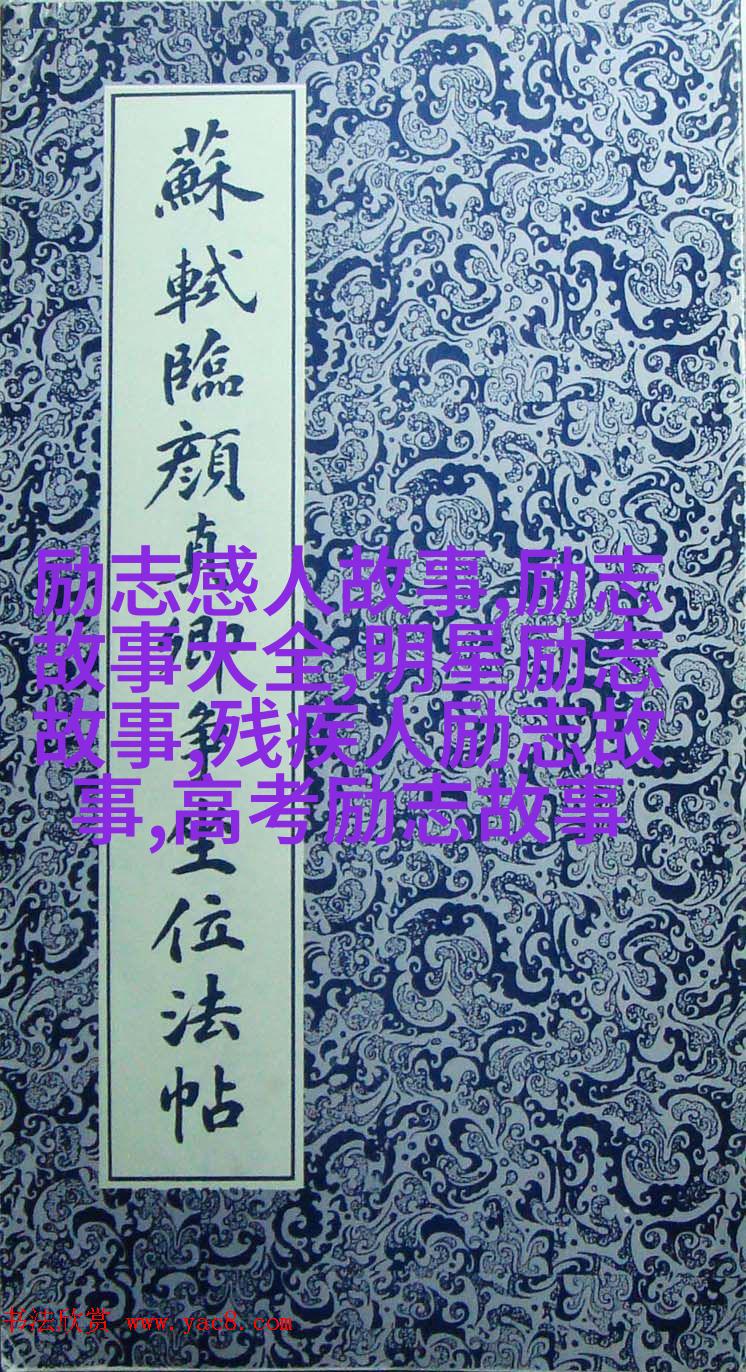 蘇軾臨顏真卿爭坐位法帖
励志感人故事,励志
故事大全,明星励志
故事,残疾人励志故
事,高考励志故事
书法欣赏 www.yac8.com